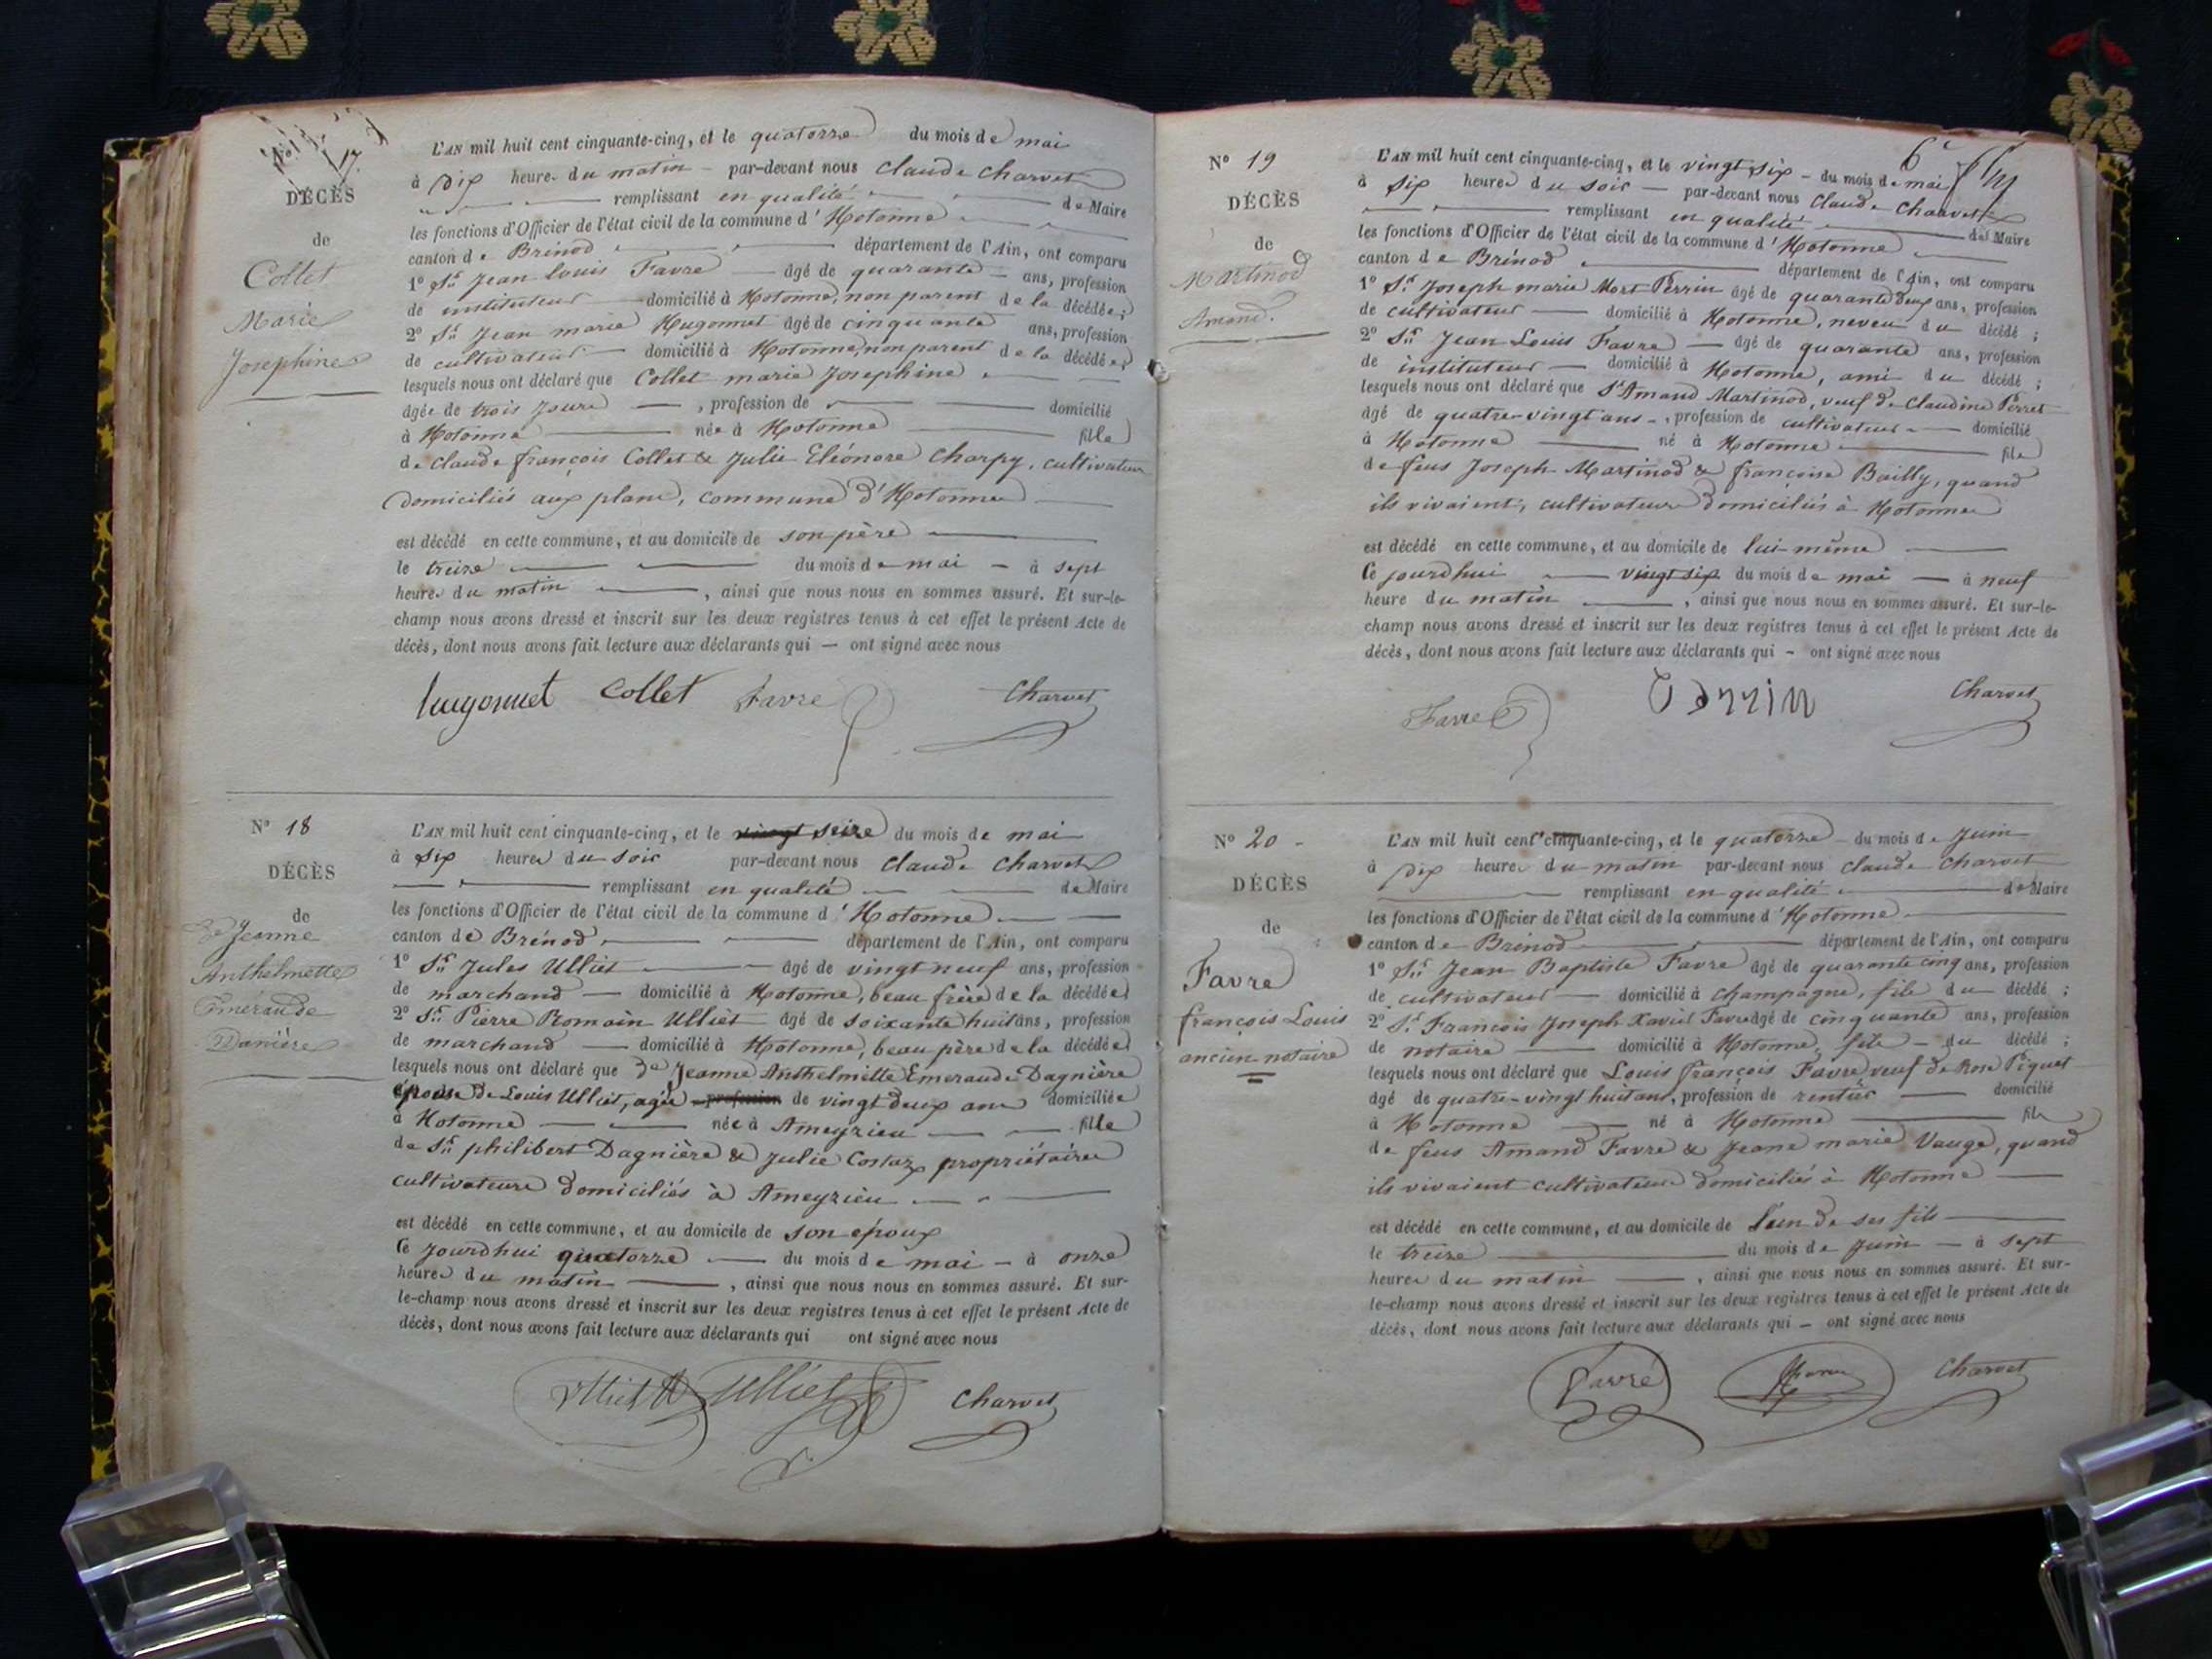 17
DÉCÈS
de
Collet
Marie
Josephine
L'AN mil huit cent cinquante-cinq, et le quatorze du mois de mai
à dix heures du matin par-devant nous Claude Charvet
remplissant en qualité de Maire
les fonctions d'Officier de l'état civil de la commune d'Hotonne
canton de Brénod département de l'Ain, ont comparu
1º Sr. Jean Louis Favre âgé de quarante ans, profession
de instituteur domicilié à Hotonne, non parent de la décédée;
2º Sr. Jean marie Hugonnet âgé de cinquante ans, profession
de cultivateur domicilié à Hotonne, non parent de la décédée;
lesquels nous ont déclaré que Collet marie Josephine
âgée de trois jours, profession de domicilié
à Hotonne née à Hotonne fille
de Claude françois Collet & Julie Eléonore Charpy, cultivateurs
domiciliés aux plans, commune d'Hotonne
est décédé en cette commune, et au domicile de son père
le treize du mois de mai - à sept
heures du matin, ainsi que nous nous en sommes assuré. Et sur-le-
champ nous avons dressé et inscrit sur les deux registres tenus à cet effet le présent Acte de
décès, dont nous avons fait lecture aux déclarants qui — ont signé avec nous
hugonnet Collet Favre Charvet
Nº 18
DÉCÈS
de
De Jeanne
Anthelmette
Emeraude
Danière
L'AN mil huit cent cinquante-cinq, et le vingt seize du mois de mai
à six heures du soir par-devant nous Claude Charvet
remplissant en qualité de Maire
les fonctions d'Officier de l'état civil de la commune d'Hotonne
canton de Brénod département de l'Ain, ont comparu
1º Sr. Jules Ulliet âgé de vingt neuf ans, profession
de marchand domicilié à Hotonne, beau frère de la décédée
2º Sr. Pierre Romain Ulliet âgé de soixante huit ans, profession
de marchand domicilié à Hotonne, beau père de la décédée
lesquels nous ont déclaré que De Jeanne Anthelmette Emeraude Dagnière
épouse de Louis Ulliet, agée profession de vingt deux ans domiciliée
à Hotonne née à Ameyzieu fille
de Sr. philibert Dagnière & Julie Costaz propriétaires
cultivateurs domiciliés à Ameyzieu
est décédé en cette commune, et au domicile de son époux
Ce jourdhui quatorze du mois de mai - à onze
heures du matin, ainsi que nous nous en sommes assuré. Et sur-
le-champ nous avons dressé et inscrit sur les deux registres tenus à cet effet le présent Acte de
décès, dont nous avons fait lecture aux déclarants qui ont signé avec nous
Ulliet Ulliet Charvet
Nº 19
DÉCÈS
de
Martinod
Amand.
6e
L'AN mil huit cent cinquante-cinq, et le vingt six - du mois de mai
à six heures du soir — par-devant nous Claude Charvet
remplissant en qualité de Maire
les fonctions d'Officier de l'état civil de la commune d'Hotonne
canton de Brénod département de l'Ain, ont comparu
1º Sr. Joseph marie Mort Perrin âgé de quarante deux ans, profession
de cultivateur domicilié à Hotonne, neveu du décédé;
2º Sr. Jean Louis Favre âgé de quarante ans, profession
de instituteur domicilié à Hotonne, ami du décédé;
lesquels nous ont déclaré que Sr Amand Martinod, veuf de Claudine Perret
âgé de quatre-vingt ans, profession de cultivateur domicilié
à Hotonne né à Hotonne fils
de feus Joseph Martinod & françoise Bailly, quand
ils vivaient, cultivateurs domiciliés à Hotonne
est décédé en cette commune, et au domicile de lui-même
Ce jourdhui vingt six du mois de mai — à neuf
heure du matin, ainsi que nous nous en sommes assuré. Et sur-le-
champ nous avons dressé et inscrit sur les deux registres tenus à cet effet le présent Acte de
décès, dont nous avons fait lecture aux déclarants qui - ont signé avec nous
Favre Perrin Charvet
Nº 20
DÉCÈS
de
Favre
françois Louis
ancien notaire
L'AN mil huit cent cinquante-cinq, et le quatorze du mois de Juin
à dix heures du matin par-devant nous Claude Charvet
remplissant en qualité de Maire
les fonctions d'Officier de l'état civil de la commune d'Hotonne
canton de Brénod département de l'Ain, ont comparu
1º Sr. Jean Baptiste Favre âgé de quarante cinq ans, profession
de cultivateur domicilié à Champagne, fils du décédé;
2º Sr. François Joseph Xavier Favre âgé de cinquante ans, profession
de notaire domicilié à Hotonne, fils - du décédé;
lesquels nous ont déclaré que Louis françois Favre veuf de Rose Piquet
âgé de quatre-vingt huit ans, profession de rentier domicilié
à Hotonne né à Hotonne fils
de feus Amand Favre & Jeanne marie Vauge, quand
ils vivaient cultivateurs domiciliés à Hotonne
est décédé en cette commune, et au domicile de l'un de ses fils
le treize du mois de Juin — à sept
heures du matin, ainsi que nous nous en sommes assuré. Et sur-
le-champ nous avons dressé et inscrit sur les deux registres tenus à cet effet le présent Acte de
décès, dont nous avons fait lecture aux déclarants qui - ont signé avec nous
Favre Charvet